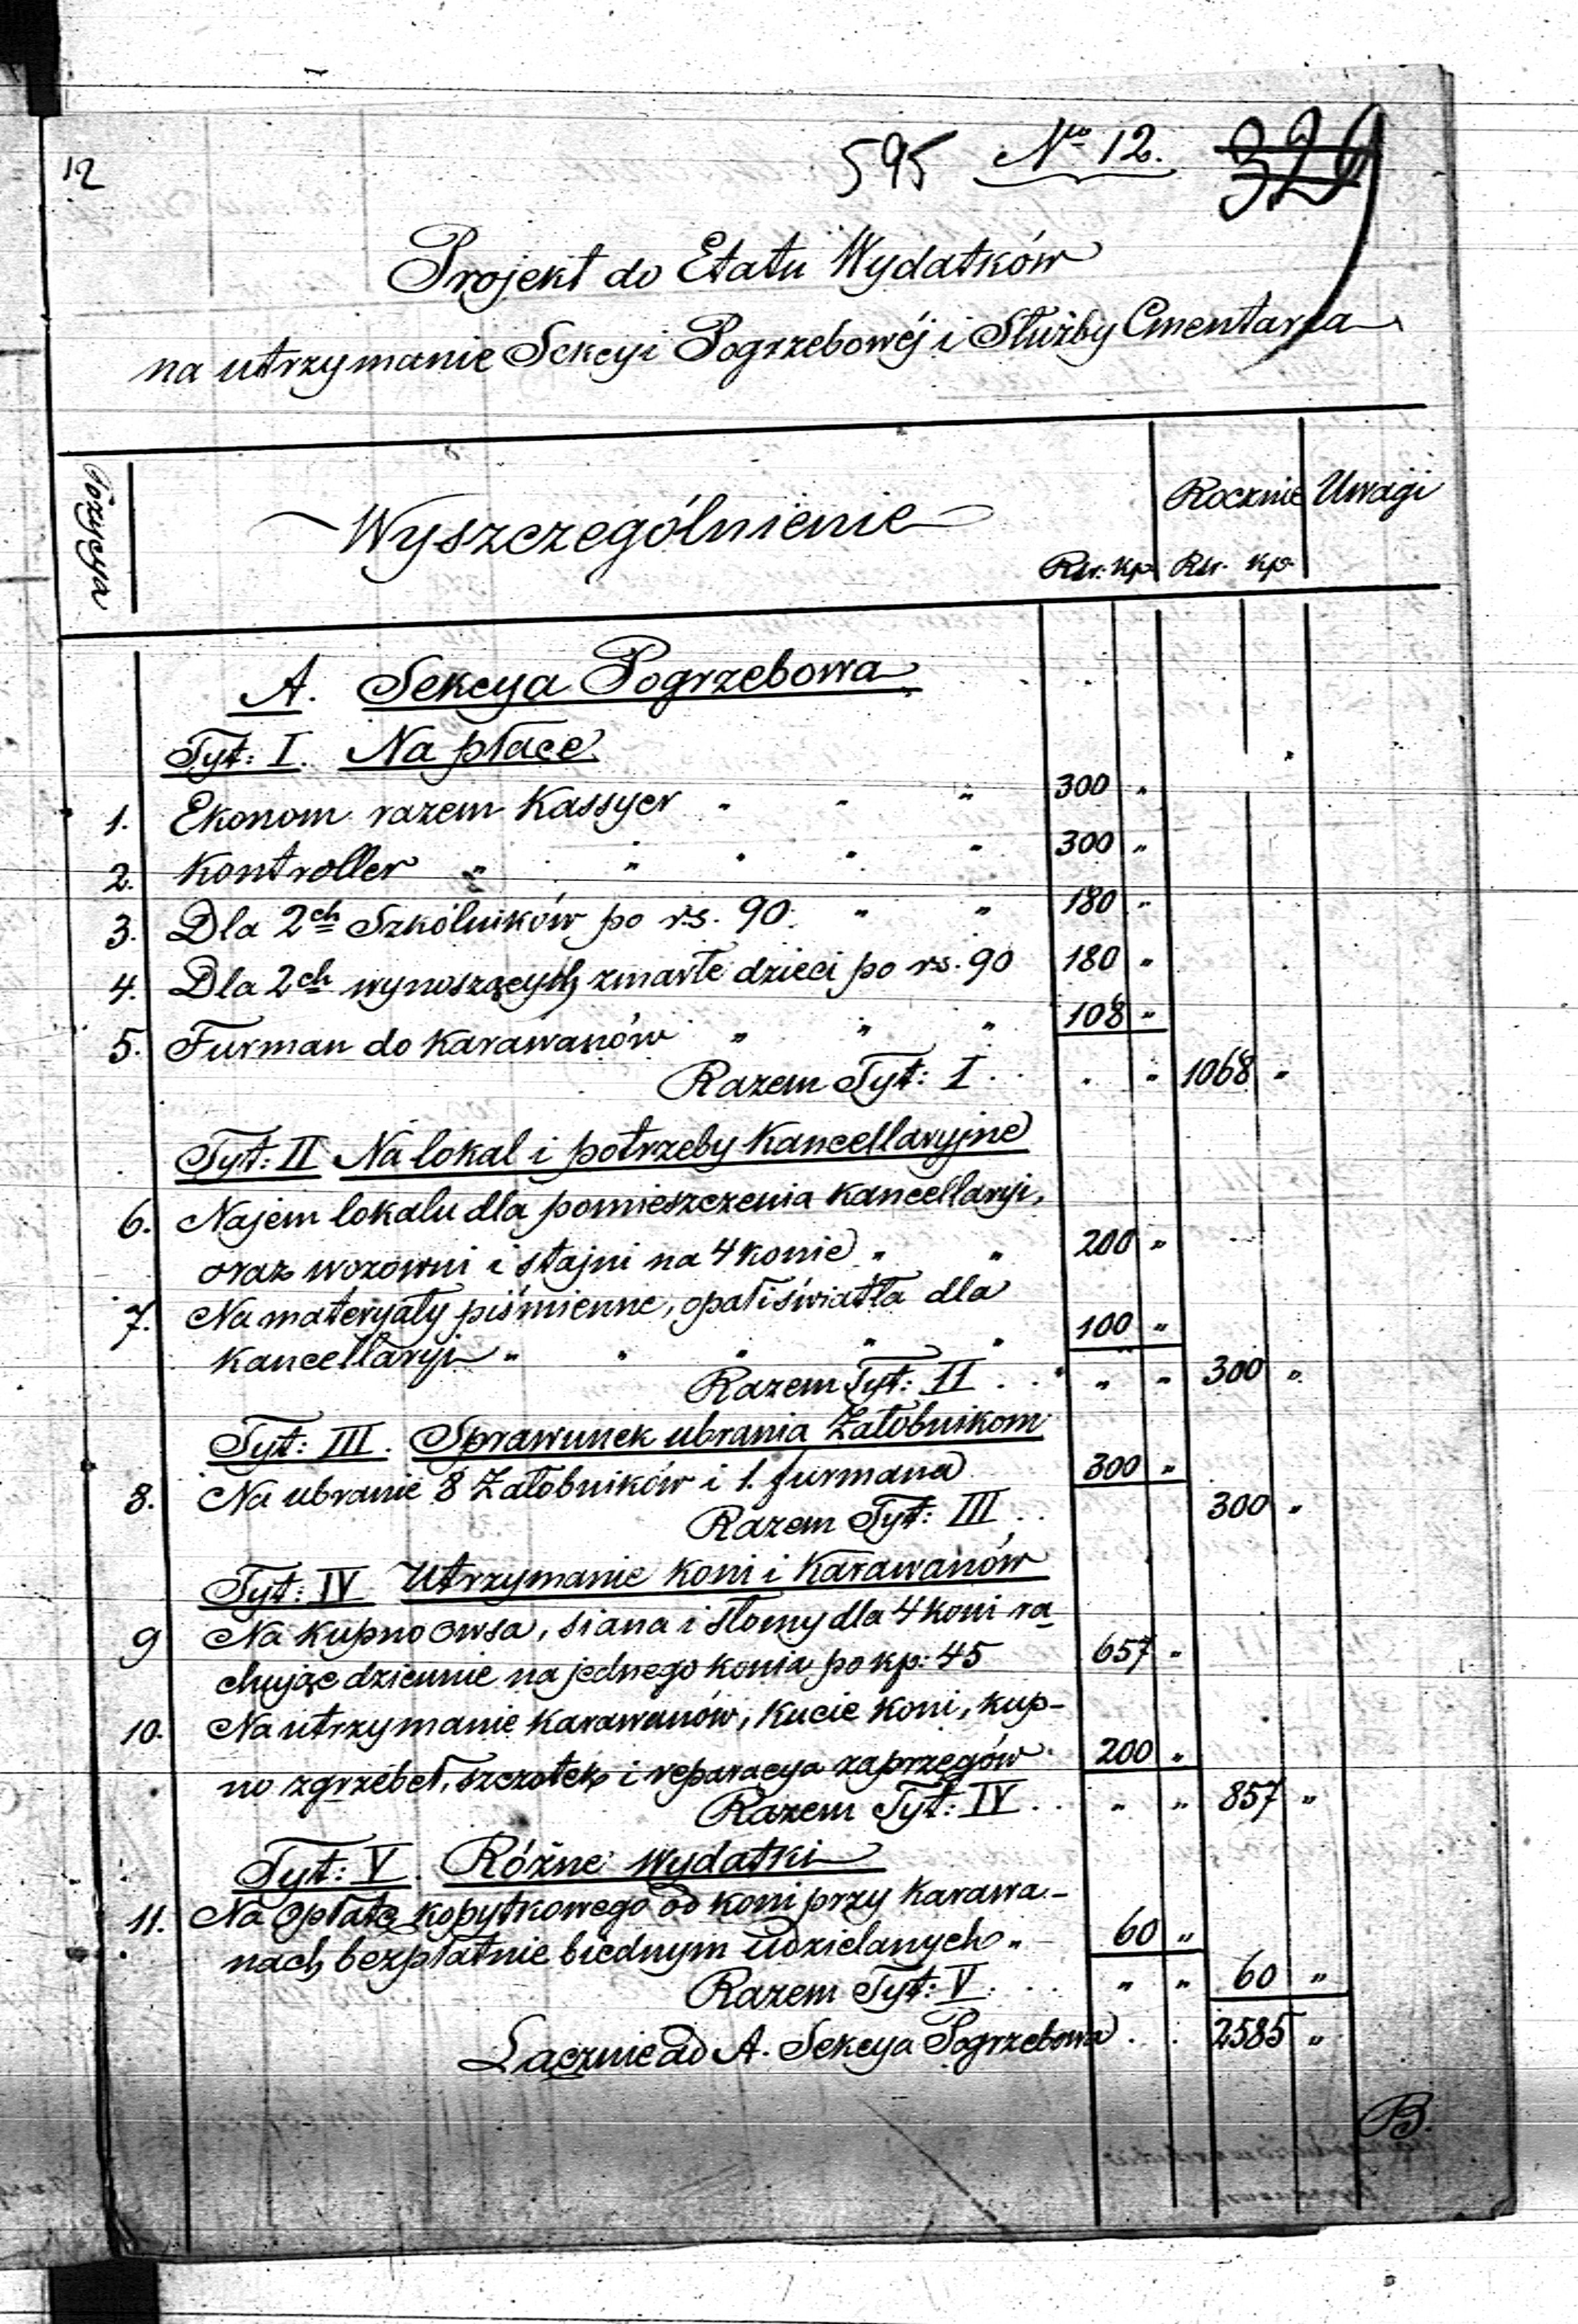 12
595 No 12. 329
Projekt do Etatu Wydatków
na utrzymanie Sekcyi Pogrzebowéj i Służby Cmentarza
Pozycya Wyszczególnienie Rocznie Uwagi
Rsr. kp. Rsr. kp.
A. Sekcya Pogrzebowa
Tyt: I. Na płace
1. Ekonom razem Kassyer " " " 300 "
2. Kontroller " " " " " 300 "
3. Dla 2ch Szkólników po rs. 90. " " 180 "
4. Dla 2ch wynoszących zmarłe dzieci po rs. 90 180 "
5. Furman do karawanów " " " 108 "
Razem Tyt: I . . " " 1068 "
Tyt: II Na lokal i potrzeby Kancellaryjne
6. Najem lokalu dla pomieszczenia Kancellaryi,
oraz wozowni i stajni na 4 konie " " 200 "
7. Na materyały piśmienne, opał i światła dla
kancellaryi " " " " " 100 "
Razem Tyt: II . . " " 300 "
Tyt: III. Sprawunek ubrania Żałobnikom
8. Na ubranie 8 Żałobników i 1. furmana 300 "
Razem Tyt: III . . 300 "
Tyt: IV Utrzymanie koni i Karawanów
9 Na kupno owsa, siana i słomy dla 4 koni ra-
chując dziennie na jednego konia po kp: 45 657 "
10. Na utrzymanie karawanów, kucie koni, kup-
no zgrzebeł, szczotek i reparacya zaprzęgów 200 "
Razem Tyt: IV . . " " 857 "
Tyt: V. Różne wydatki
11. Na opłatę kopytkowego od koni przy karawa-
nach bezpłatnie biednym udzielanych " 60 "
Razem Tyt: V. . . " " 60 "
Łącznie ad A. Sekcya Pogrzebowa . . 2585 "
B.